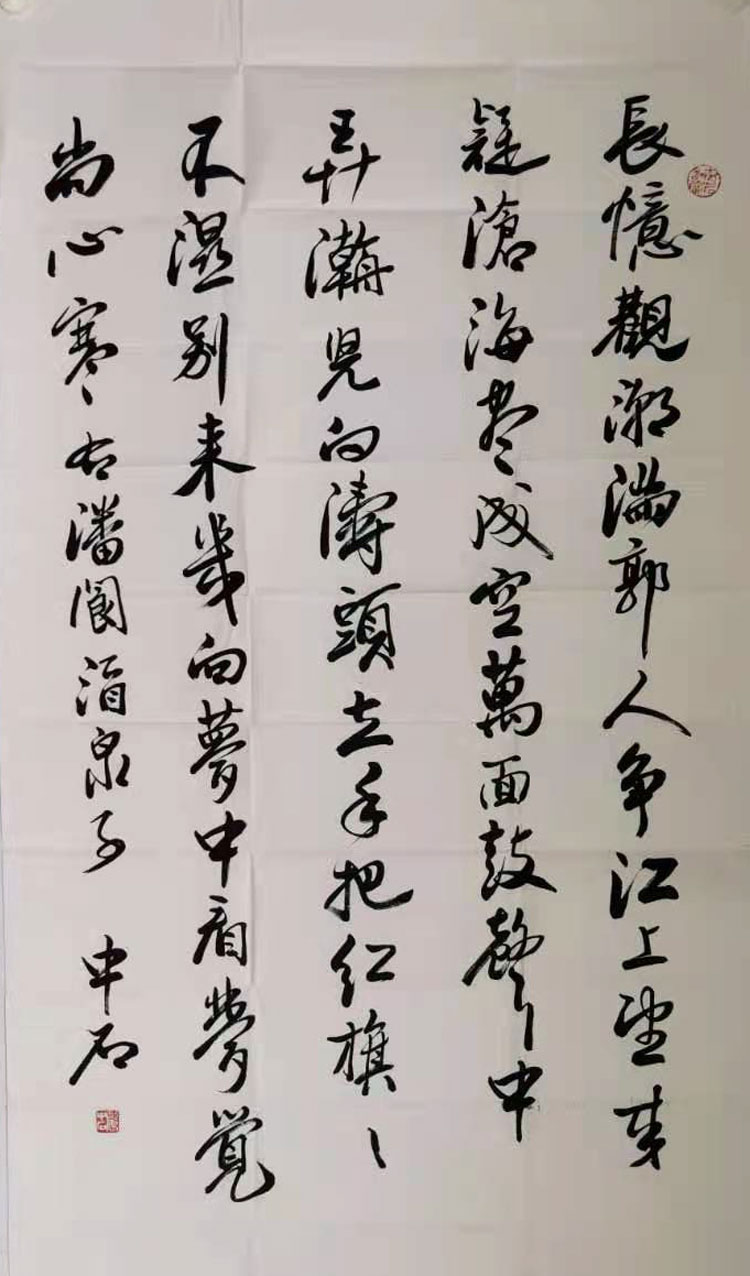 長憶觀潮滿郭人争江上望来
疑滄海盡成空萬面鼓聲中
弄潮児向濤頭立手把红旗〻
不濕别来幾向夢中看夢覺
尚心寒右潘阆酒泉子 中石